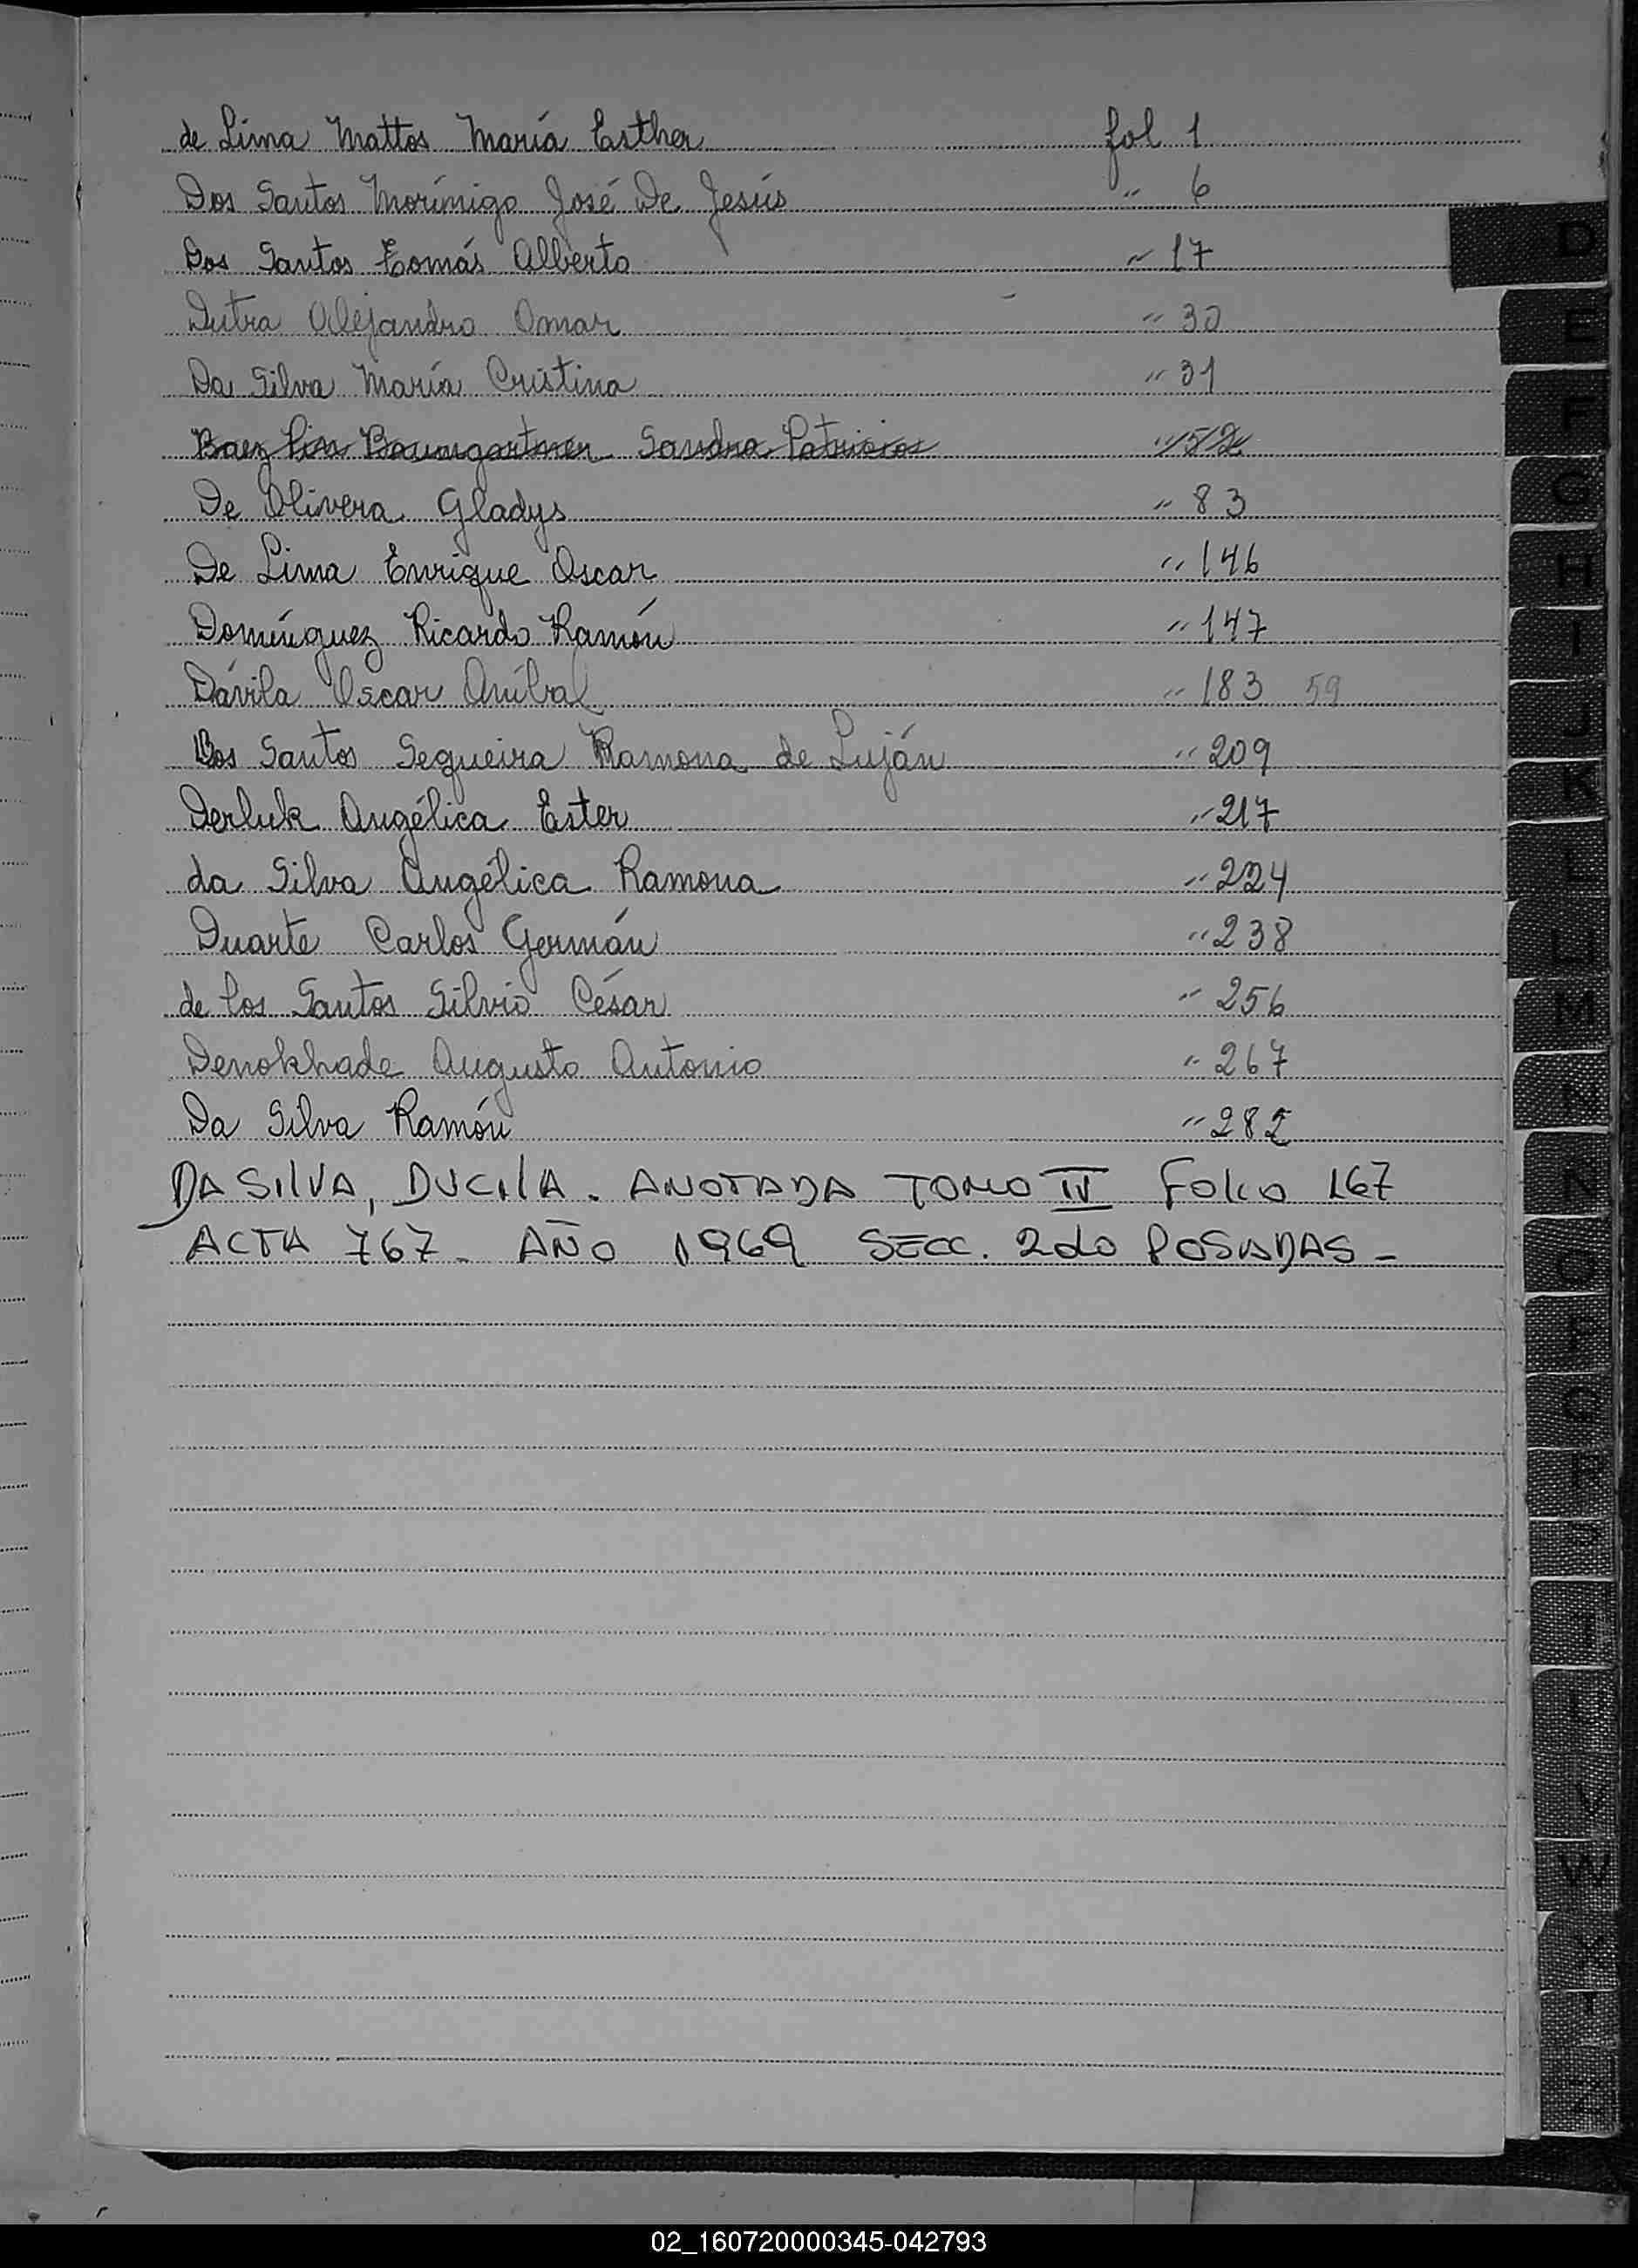 de Lima Mattos María Esther fol 1
Dos Santos Morínigo José De Jesús " 6
Dos Santos Tomás Alberto " 17
Dutra Alejandro Omar " 30
Da Silva María Cristina " 31
Baez Baumgartner Sandra Patricia " 52
De Olivera Gladys " 83
De Lima Enrique Oscar " 146
Domínguez Ricardo Ramón " 147
Dávila Oscar Aníbal " 183 59
Dos Santos Sequeira Ramona de Luján " 209
Derluk Angélica Ester " 217
da Silva Angélica Ramona " 224
Duarte Carlos Germán " 238
de los Santos Silvio César " 256
Denokhade Augusto Antonio " 267
Da Silva Ramón " 282
DA SILVA, DUCILA. ANOTADA TOMO IV FOLIO 167
ACTA 767 - AÑO 1969 SECC. 2do POSADAS -
D
E
F
G
H
I
J
K
L
LL
M
N
Ñ
O
P
Q
R
S
T
U
V
W
X
Y
Z
02_160720000345-042793